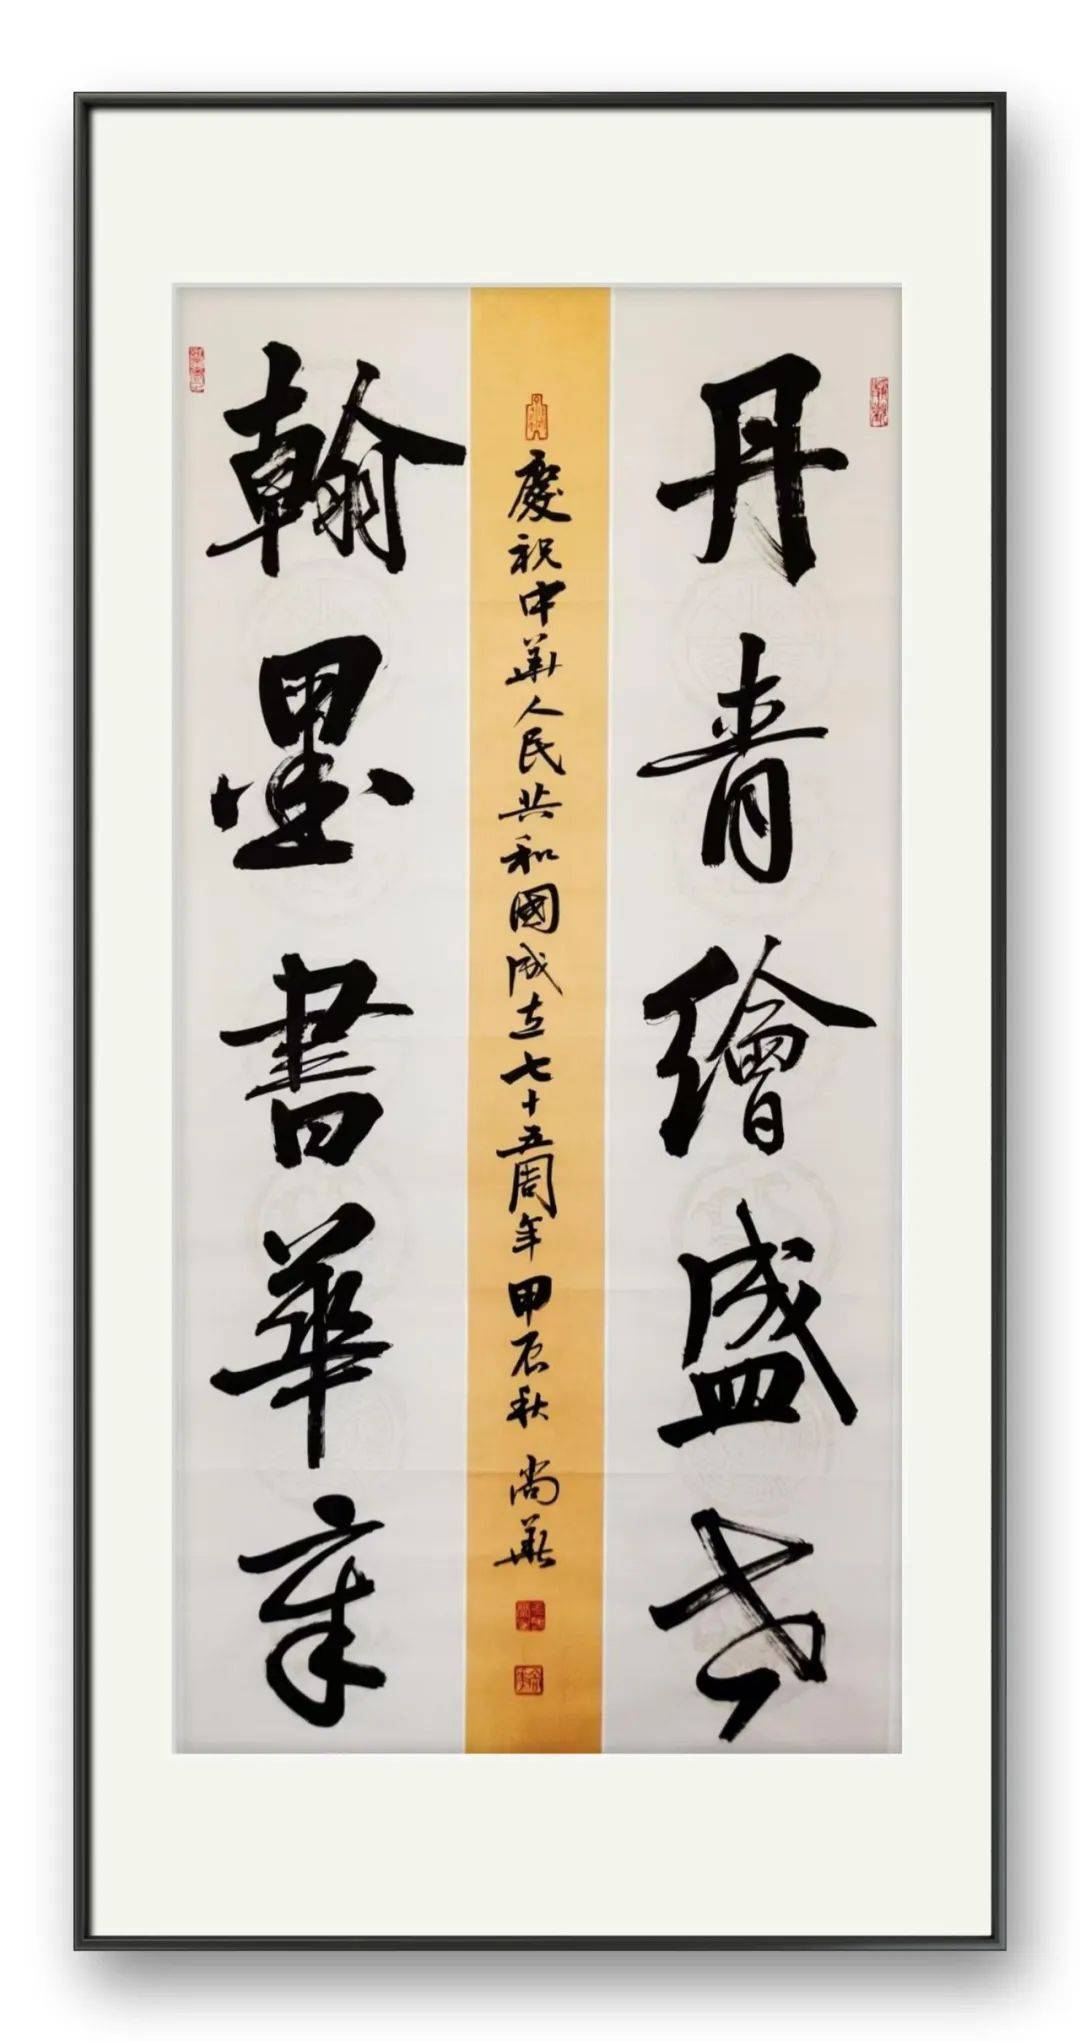 丹青繪盛世
慶祝中華人民共和國成立七十五周年甲辰秋 尚華
翰墨書華章